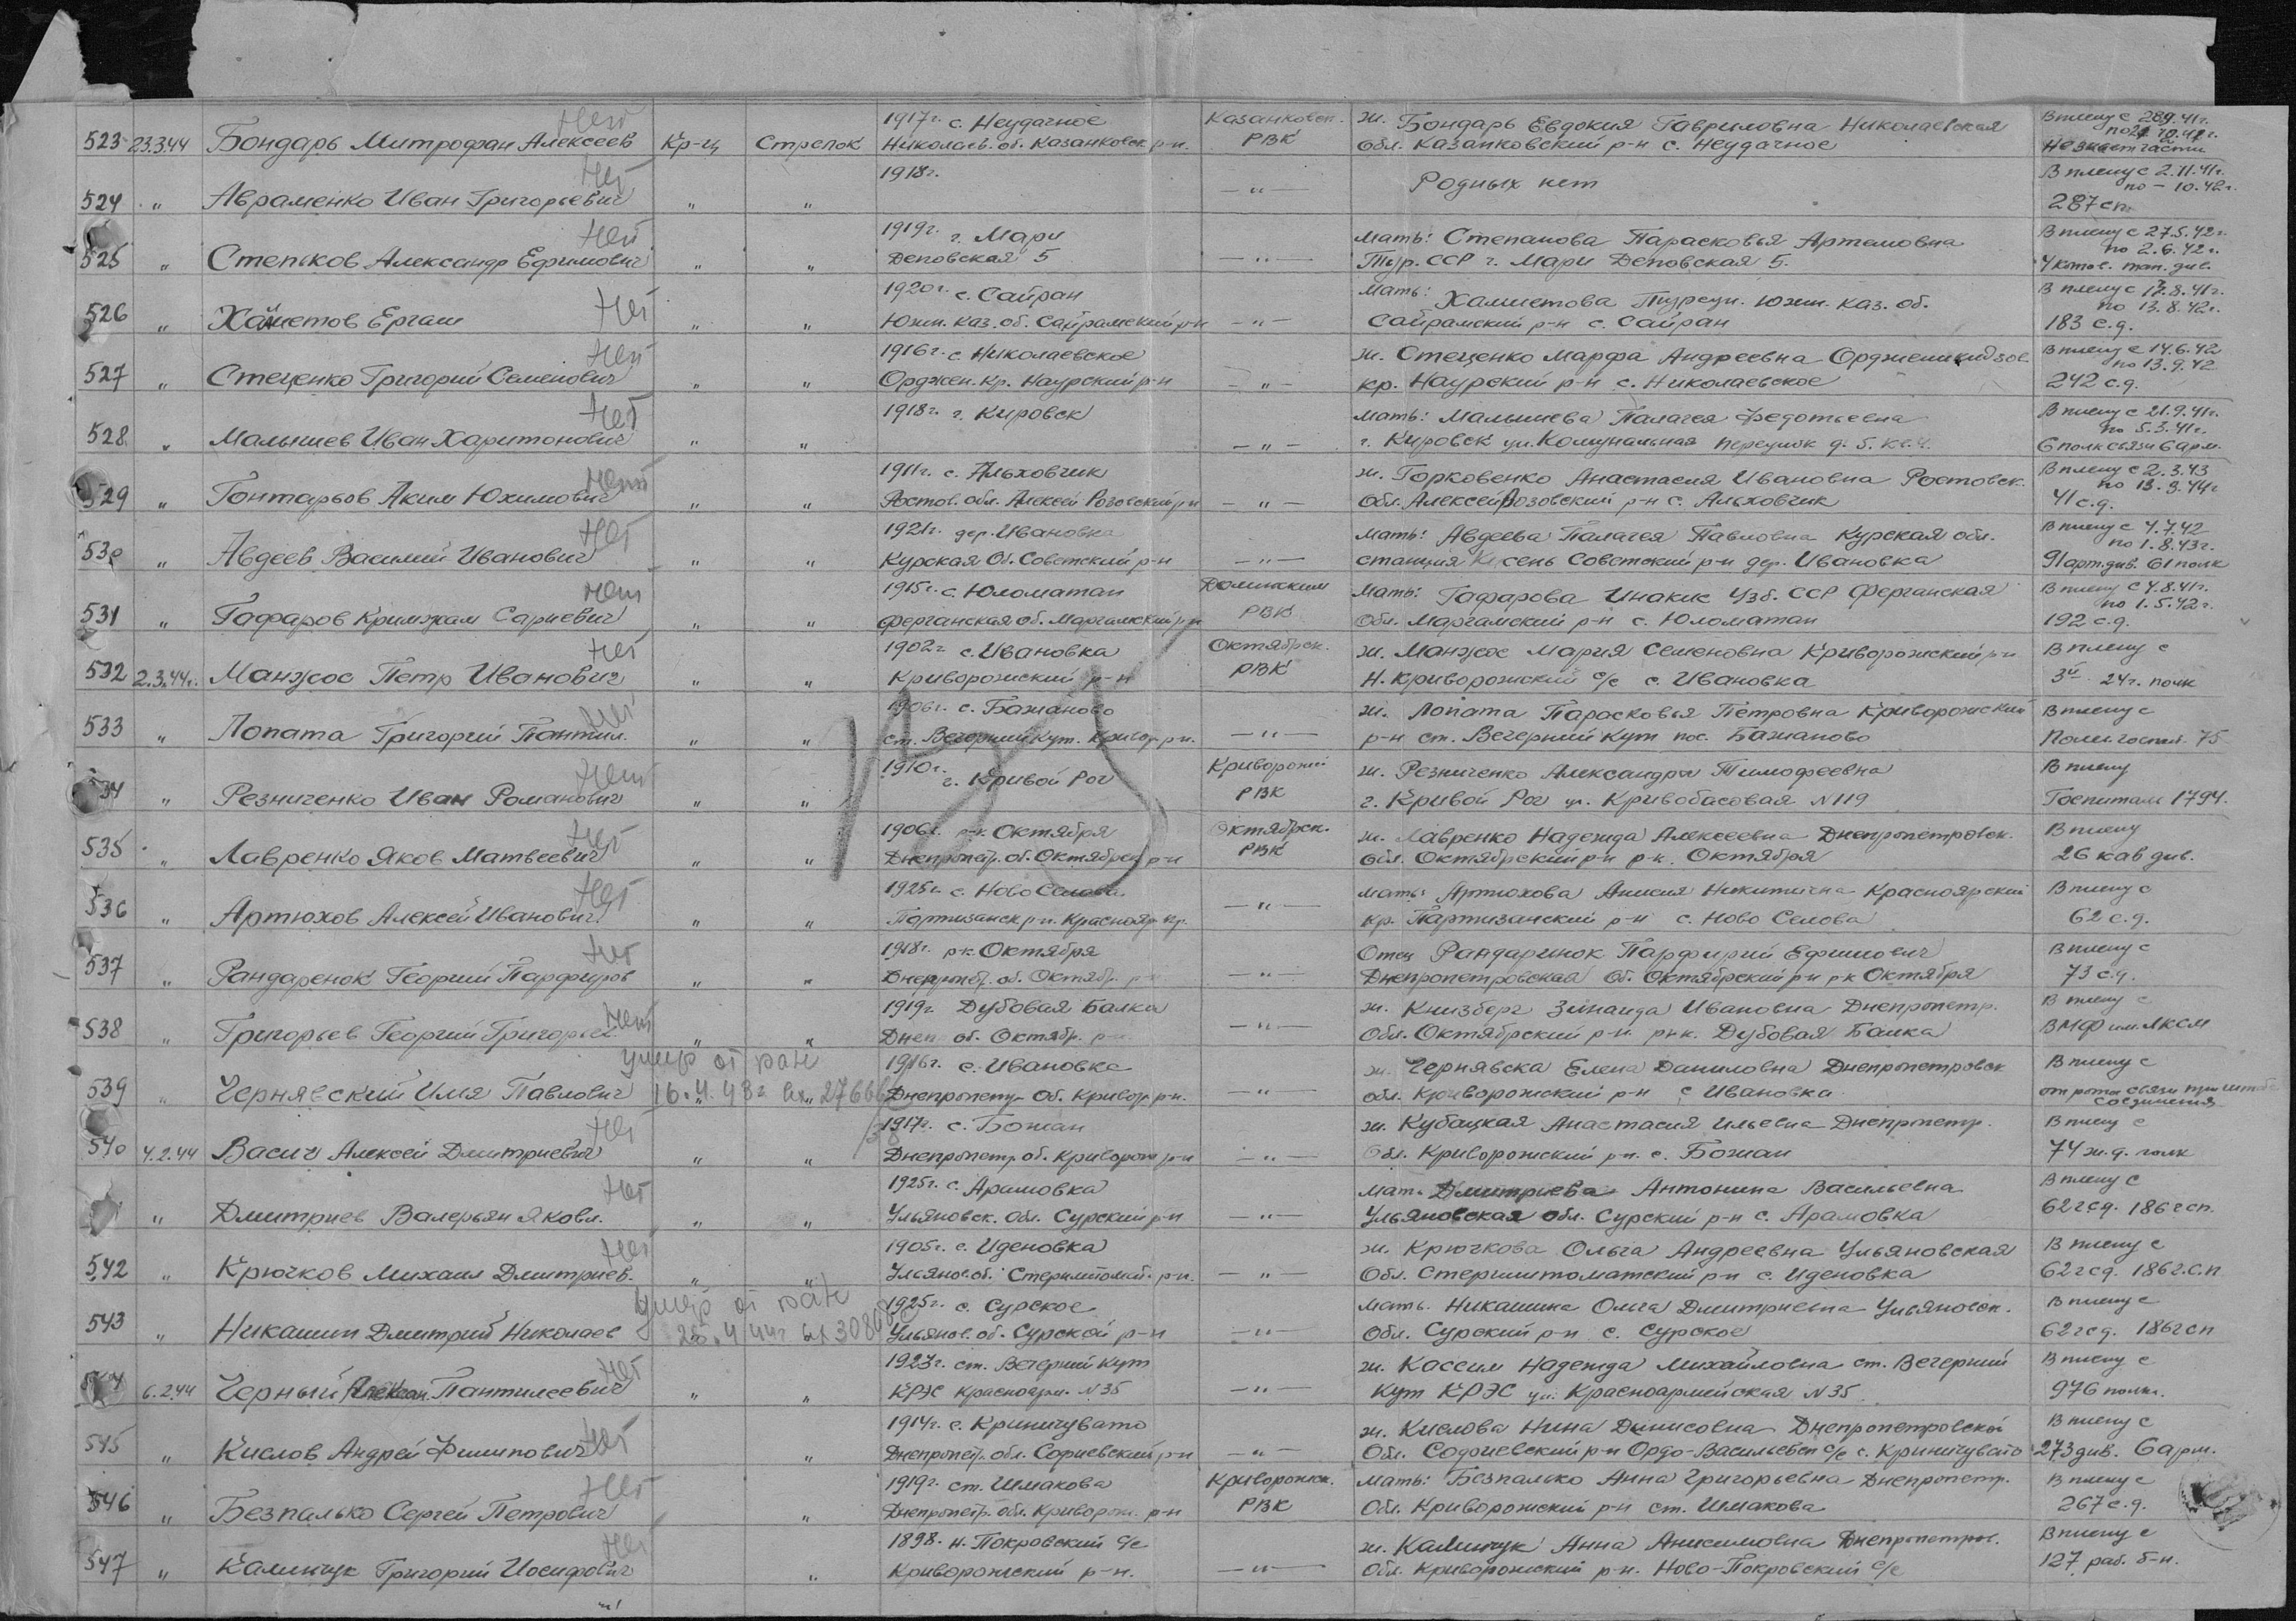 Нет
1917г. с. Неудачное Казанковск. ж. Бондарь Евдокия Гавриловна Николаевская В плену с 28.9.41г.
523 23.3.44 Бондарь Митрофан Алексеев Кр-ц Стрелок Николаев. об. Казанковск. р-н. РВК обл. Казанковский р-н с. Неудачное
Не знает части
Нет
1918г. В плену с 2.11.41г.
524 " Авраменко Иван Григорьевич " " — " — Родных нет по – 10.42г.
287 сп.
Нет
1919г. г. Мари мать: Степанова Парасковья Артемовна В плену с 27.5.42г.
525 " Степыков Александр Ефимович " " Деповская 5 — " — Тур. ССР г. Мари Деповская 5. по 2.6.42г.
Нет
1920г. с. Сайран Мать: Хамметова Южн. Каз. об. В плену с 13.8.41г.
526 " Хаметов Ергаш " " Южн. Каз. об. Сайрамский р-н — " — Сайрамский р-н с. Сайран по 13.8.42г.
183 с.д.
Нет
1916г. с. Николаевское ж. Стеценко Марфа Андреевна Орджоникидзов. В плену с 14.6.42
527 " Стеценко Григорий Семенович " " Орджен. Кр. Наурский р-н — " — кр. Наурский р-н с. Николаевское по 13.9.42
242 с.д.
Нет
1918г. г. Кировск мать: Малышева Палагея Федотьевна В плену с 21.9.41г.
528 " Малышев Иван Харитонович " " — " — г. Кировск ул. Комунальная переулок д. 5. кв. 4. по 5.3.41г.
6 полк связи 6 арм.
Нет
1911г. с. Альховчик ж. Горковенко Анастасия Ивановна Ростовск. В плену с 2.3.43
529 " Гонтарьов Аким Юхимович " " Ростов. обл. Алексей Розовский р-н — " — обл. Алексей Розовский р-н с. Альховчик по 13.3.44г
41 с.д.
Нет
1921г. дер. Ивановка мать: Авдеева Палагея Павловна Курская обл. В плену с 4.7.42
530 " Авдеев Василий Иванович " " Курская Об. Советский р-н — " — станция Кшень Советский р-н дер. Ивановка по 1.8.43г.
91 арт. див. 61 полк
Нет
1915г. с. Юломатан РВК Мать: Гафарова Инакик Узб. ССР Ферганская В плену с 4.8.41г.
531 " Гафаров Кримжам Сариевич " " Ферганская об. Маргаланский р-н Обл. Маргамский р-н с. Юломатан по 1.5.42г.
192 с.д.
Нет
1902г с. Ивановка Октябрск. ж. Манжос Мария Семеновна Криворожский р-н В плену с
532 2.3.44г. Манжос Петр Иванович " " Криворожский р-н РВК Н. Криворожский с/с с. Ивановка 3й 24г. полк
Нет
1906г. с. Бажаново ж. Лопата Парасковья Петровна Криворожский В плену с
533 " Лопата Григорий Пантил. " " ст. Вечерний Кут. Кривор. р-н. — " — р-н ст. Вечерний Кут пос. Бажаново 75
Нет
1910г. г. Кривой Рог Криворожс РВК ж. Резниченко Александра Тимофеевна В плену
534 " Резниченко Иван Романович " " г. Кривой Рог ул. Кривобасовая N 119 Госпиталь 1794.
Нет
1906г. р-к. Октября Октябрск. РВК ж. Лавренко Надежда Алексеевна Днепропетровск. В плену
535 " Лавренко Яков Матвеевич " " Днепропетр. об. Октябрск р-н обл. Октябрский р-н р-к. Октября 26 кав див.
Нет
1925г. с. Ново Селова мать Артюхова Анисия Никитична Красноярский В плену с
536 " Артюхов Алексей Иванович " " Партизанск р-н. Краснояр. кр. — " — кр. Партизанский р-н с. Ново Селова 62 с.д.
Нет
1918г. р-к. Октября Отец Рандаринок Парфирий Ефимович В плену с
537 " Рандаренок Георгий Парфиров " " Днепропетр. об. Октябр. р-н — " — Днепропетровская об. Октябрский р-н р-к Октября 73 с.д.
Нет
1919г. Дубовая Балка ж. Книзберг Зинаида Ивановна Днепропетр. В плену с
538 " Григорьев Георгий Григорьев " " Днеп об. Октябр. р-н — " — Обл. Октябрский р-н р-к. Дубовая Балка ВМФ им. ЛКСМ
умер от ран
1916г. с. Ивановка ж. Чернявска Елена Даниловна Днепропетровск В плену с
539 " Чернявский Илия Павлович 16.4.43г вх. 27666 Днепропетр. Об. Кривор. р-н. — " — обл. Криворожский р-н с Ивановка от роты связи при штабе
соединения
Нет
1917г. с. Божан ж. Кубацкая Анастасия Ильевна Днепропетр. В плену с
540 4.2.44 Васич Алексей Дмитриевич " " Днепропетр. об. Криворож р-н — " — Обл. Криворожский р-н. с. Божан 74 ж.д. полк
Нет
1925г. с. Арамовка мать Дмитриева Антонина Васильевна В плену с
" Дмитриев Валерьян Яковл. " " Ульяновск. Обл. Сурский р-н — " — Ульяновская обл. Сурский р-н с. Арамовка 62 гсд. 186 гсп.
Нет
1905г. с. Иденовка ж. Крючкова Ольга Андреевна Ульяновская В плену с
542 " Крючков Михаил Дмитриев. " " Ульянов. об. р-н. — " — Обл. Стерлитоматский р-н с. Иденовка 62 гсд. 186 г.с.п
умер от ран
1925г. с. Сурское мать. Никашина Ольга Дмитриевна Ульяновск. В плену с
543 " Никашин Дмитрий Николаев 25.4.44г вх 30808 Ульянов. об. Сурской р-н — " — Обл. Сурский р-н с. Сурское 62 гсд. 186 гсп
Нет
1923г. ст. Вечерний Кут ж. Кассим Надежда Михайловна ст. Вечерний В плену с
544 6.2.44 Черный Пантилеевич " " КРЭС Красноарм. N 35 — " — Кут КРЭС ул. Красноармейская N 35 976 полк.
Нет
1914г. с. Криничувато ж. Кислова Нина Динисовна Днепропетровской В плену с
545 " Кислов Андрей Филипович " Днепропетр. обл. Софиевский р-н — " — Обл. Софиевский р-н Ордо-Васильевск с/с с. Криничувато 273 див. 6 арм.
Нет
1919г. ст. Шмакова Криворожск. Мать: Безпалько Анна Григорьевна Днепропетр. В плену с
546 " Безпалько Сергей Петрович " Днепропетр. обл. Криворож. р-н РВК Обл. Криворожский р-н ст. Шмакова 267 с.д.
Нет
1898. н. Покровский с/с ж. Калинчук Анна Анисимовна Днепропетров. В плену с
547 " Калинчук Григорий Иосифович " Криворожский р-н. — " — Обл. Криворожский р-н. Ново-Покровский с/с 127 раб. б-н.